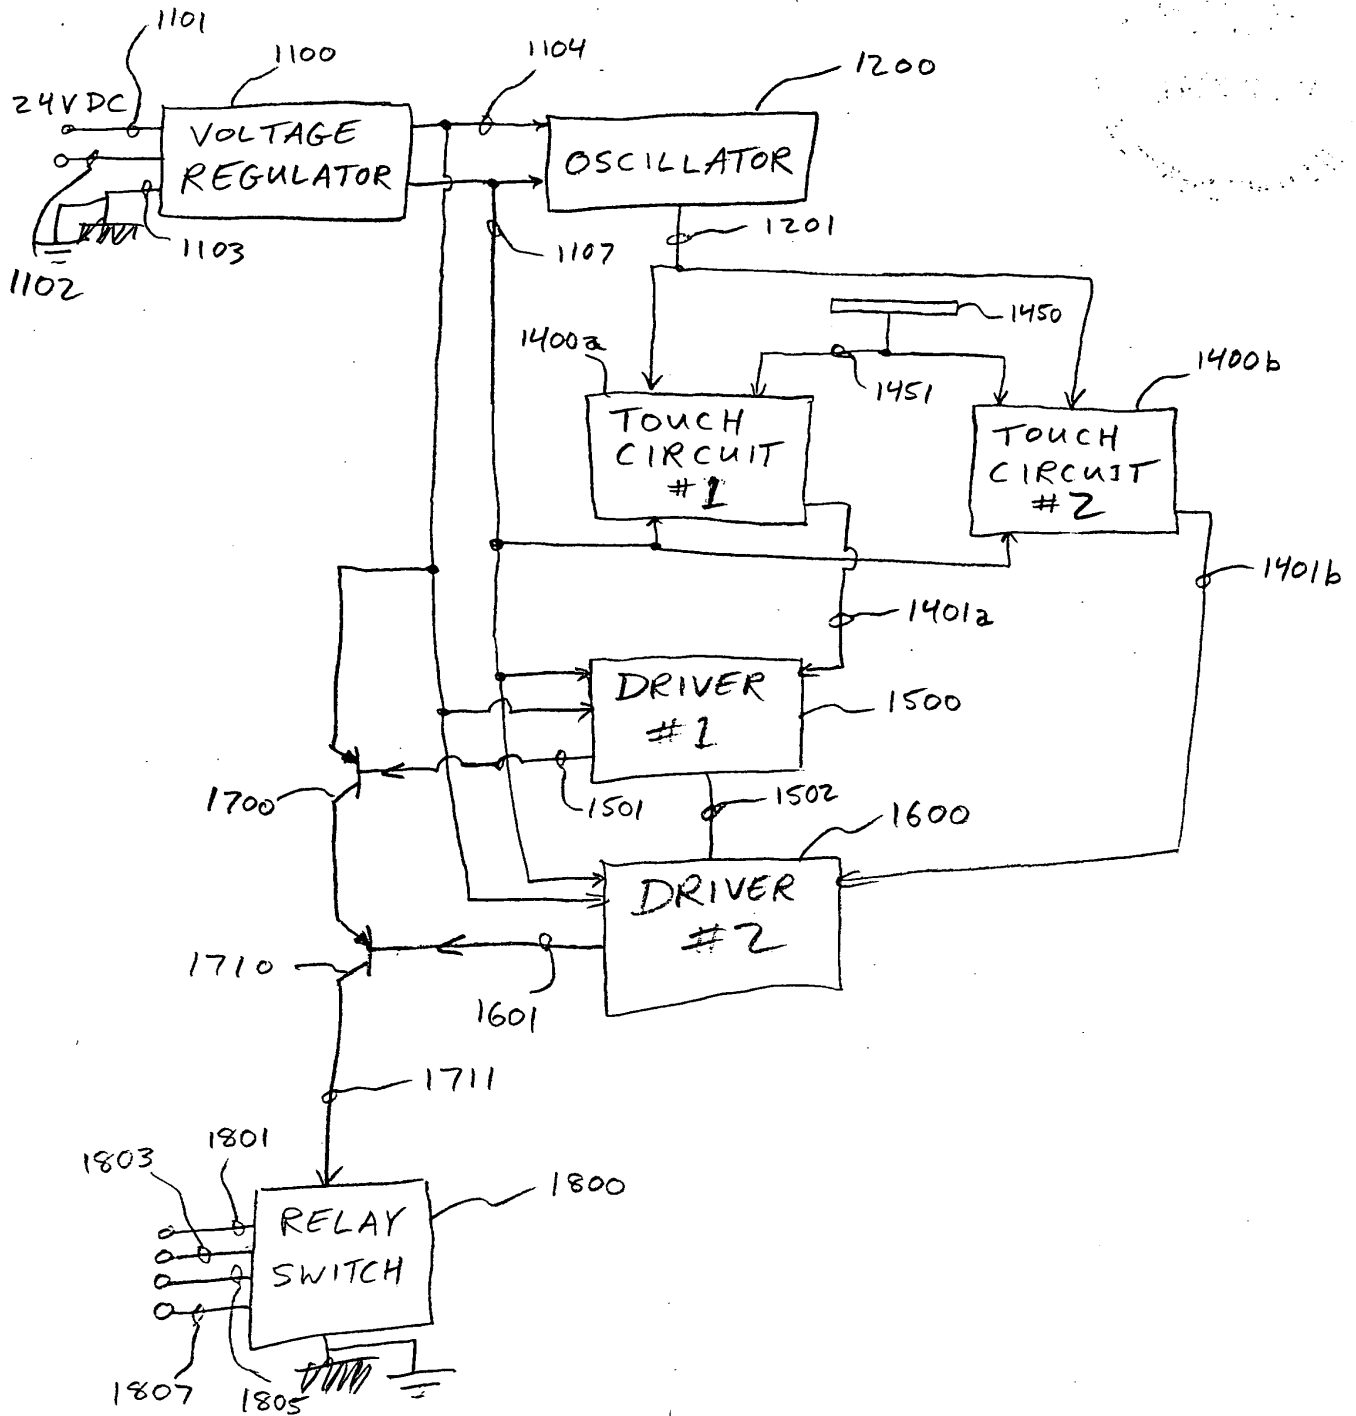 1101
1100
1104
1200
24VDC
VOLTAGE
REGULATOR
OSCILLATOR
1103
1107
1201
1102
1450
1400a
1451
1400b
TOUCH
CIRCUIT
#1
TOUCH
CIRCUIT
#2
1401b
1401a
DRIVER
#1
1500
1700
1501
1502
1600
DRIVER
#2
1710
1601
1711
1801
1803
1800
RELAY
SWITCH
1807
1805